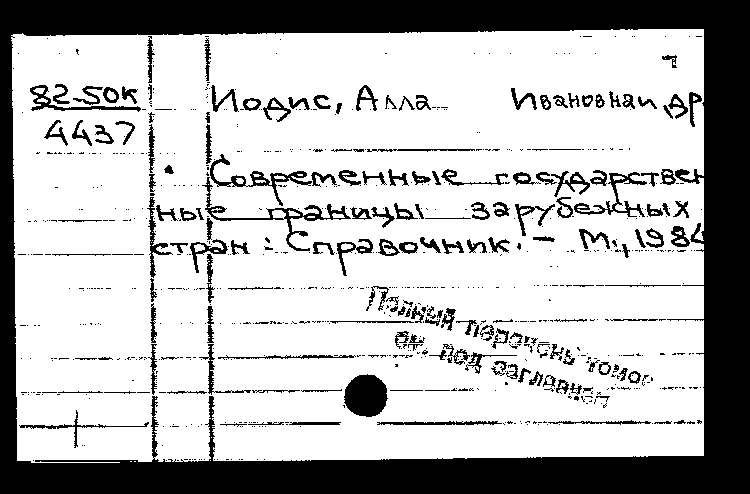 82-50к
4437
Иодис, Алла Ивановна и др
Современные государствен
ные границы зарубежных
стран: Справочник. – М., 1984
Полный перечень томов
см. под заглавием